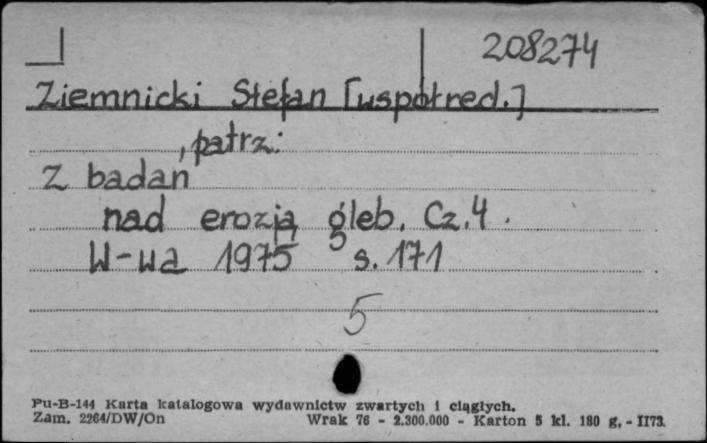 208274
Ziemnicki Stefan [współred.]
, patrz:
Z badań
nad erozją gleb. Cz. 4.
W-wa 1975 s. 171
5
Pu-B-144 Karta katalogowa wydawnictw zwartych i ciągłych.
Zam. 2264/DW/On Wrak 76 - 2.300.000 - Karton 5 kl. 180 g. - II73.